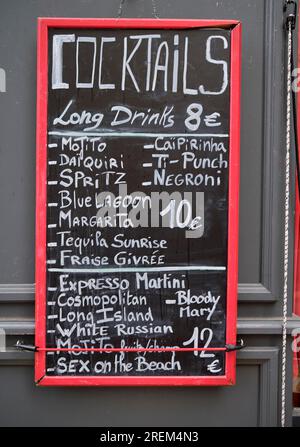 COCKTAILS
Long Drinks 8€
- Mojito
- Daïquiri
- Spritz
- Blue Lagoon
- Margarita
- Tequila Sunrise
- Fraise Givrée
- Caïpirinha
- Ti-Punch
- Negroni
10€
- Expresso Martini
- Cosmopolitan
- Long Island
- White Russian
- Mojito fruits/
- Sex on the Beach
- Bloody
Mary
12
€
alamy
Image ID: 2REM4N3
www.alamy.com